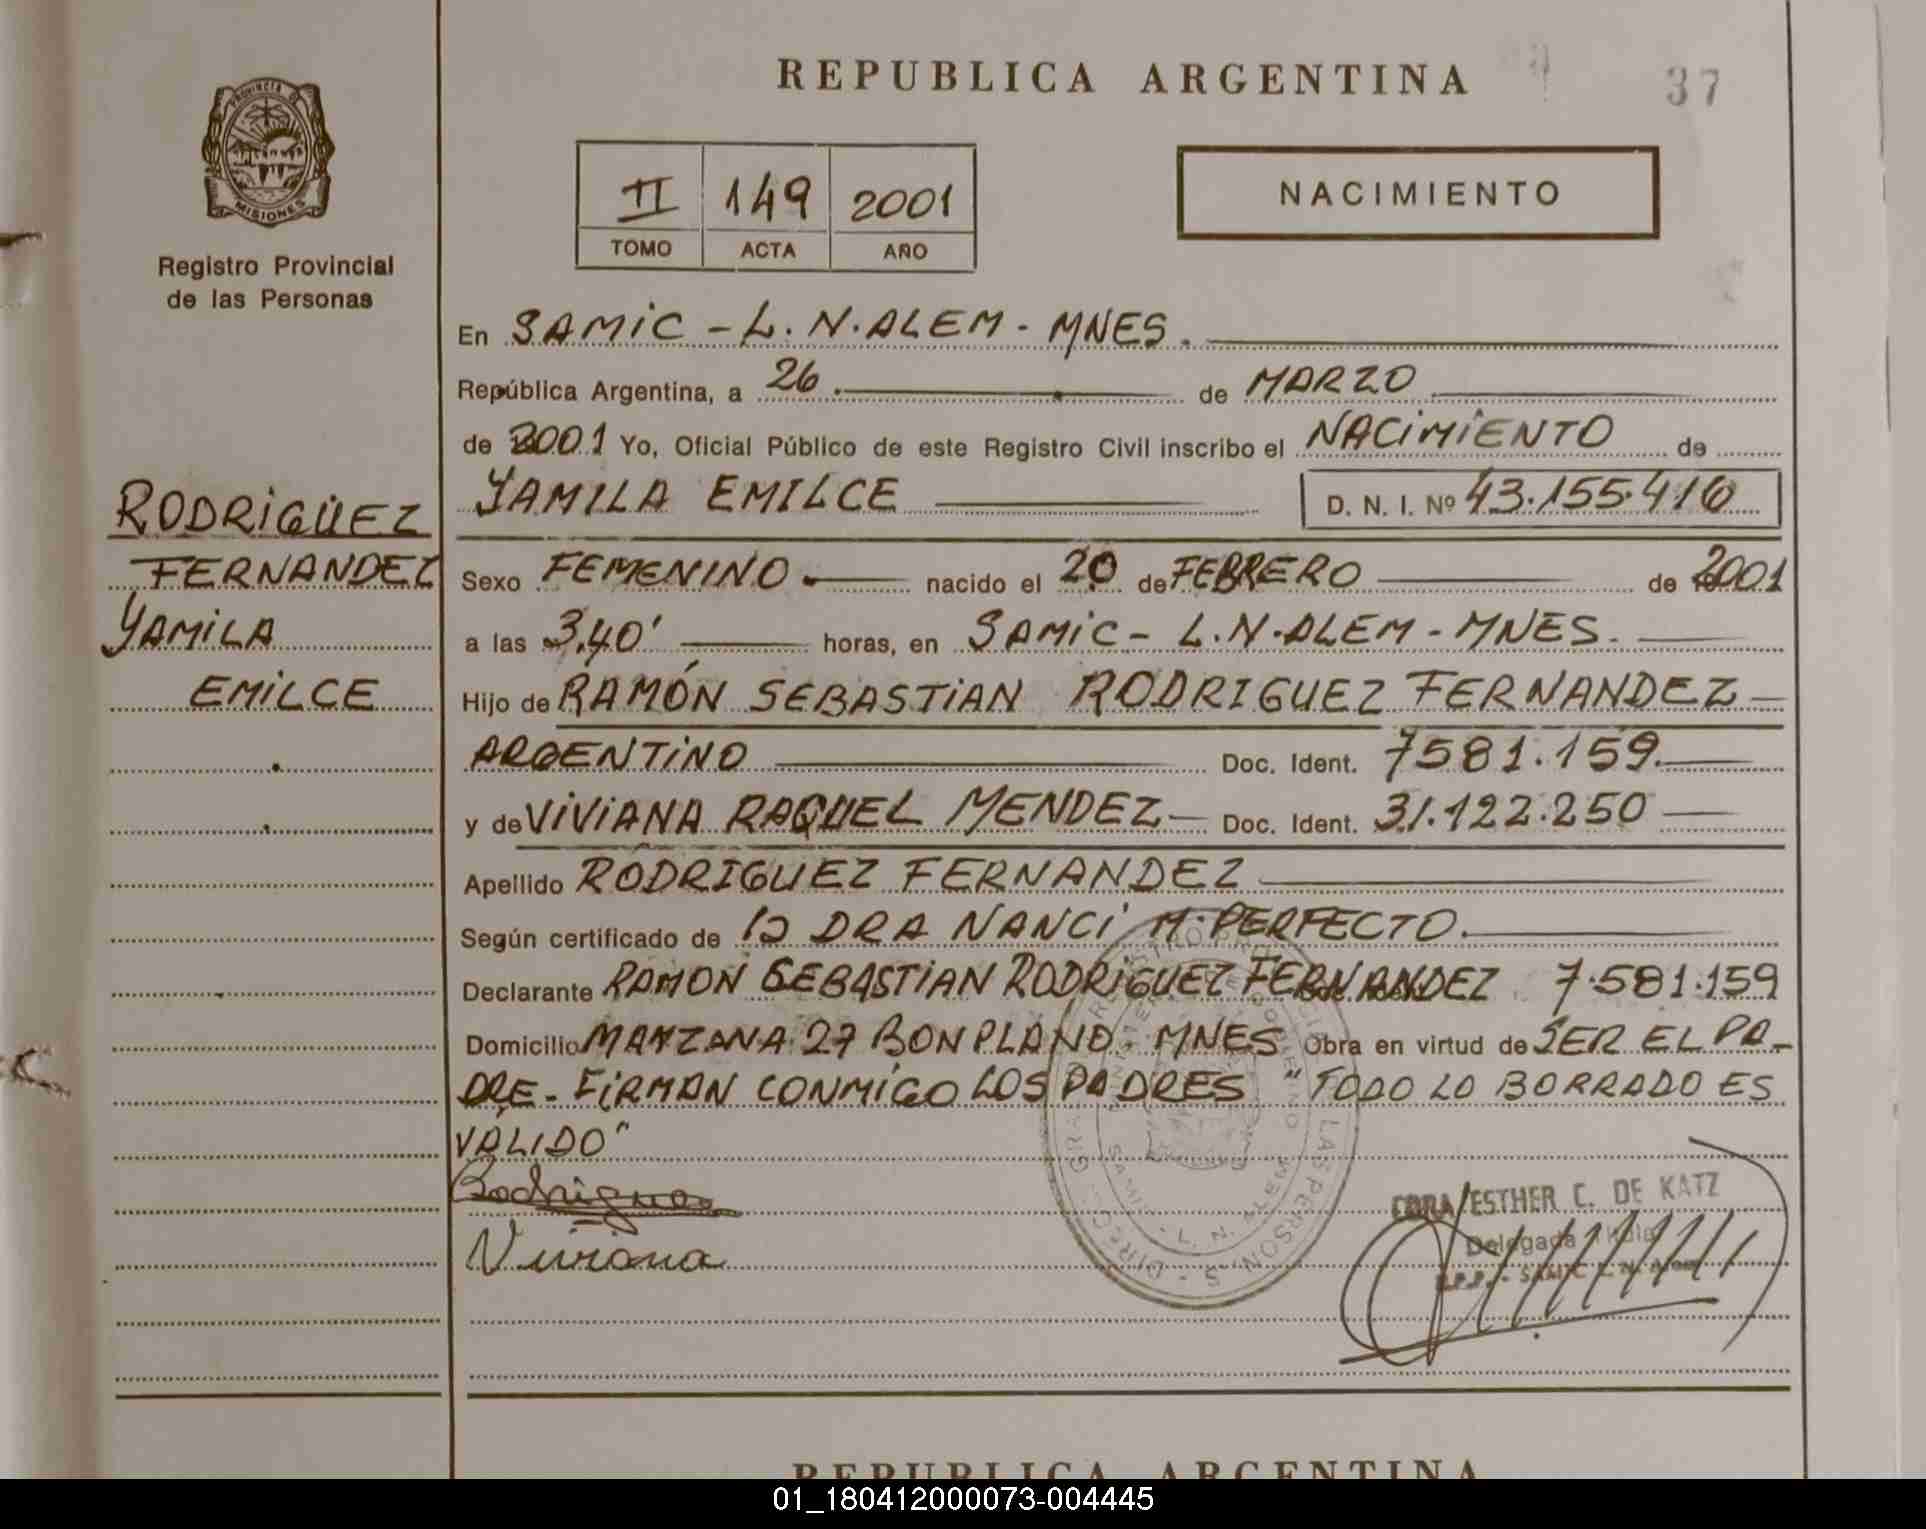 REPUBLICA ARGENTINA
37
PROVINCIA DE
MISIONES
Registro Provincial
de las Personas
II 149 2001
TOMO ACTA AÑO
NACIMIENTO
En SAMIC - L. N. ALEM - MNES.
República Argentina, a 26 de MARZO
de 2001 Yo, Oficial Público de este Registro Civil inscribo el NACIMIENTO de
YAMILA EMILCE D. N. I. Nº 43.155.416
RODRIGUEZ
FERNANDEZ
YAMILA
EMILCE
Sexo FEMENINO nacido el 20 de FEBRERO de 2001
a las 3,40' horas, en SAMIC - L.N. ALEM - MNES.
Hijo de RAMÓN SEBASTIAN RODRIGUEZ FERNANDEZ
ARGENTINO Doc. Ident. 7581.159.
y de VIVIANA RAQUEL MENDEZ Doc. Ident. 31.122.250
Apellido RODRIGUEZ FERNANDEZ
Según certificado de DRA NANCI M. PERFECTO.
Declarante RAMON SEBASTIAN RODRIGUEZ FERNANDEZ 7.581.159
Domicilio MANZANA 27 BONPLAND. MNES Obra en virtud de SER EL PA-
DRE - FIRMAN CONMIGO LOS PADRES "TODO LO BORRADO ES
VALIDO"
Rodriguez
Viviana
ESTHER C. DE KATZ
Delegada Titular
SAMIC L. N. Alem
REPUBLICA ARGENTINA
01_180412000073-004445